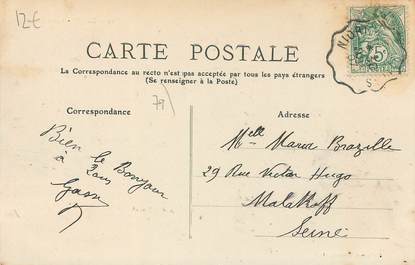 12€
CARTE POSTALE
La Correspondance au recto n'est pas acceptée par tous les pays étrangers
(Se renseigner à la Poste)
79
Correspondance
Adresse
Bien le Bonjour
à
Melle Brazille
29 Rue Victor Hugo
Malakoff
Seine
5